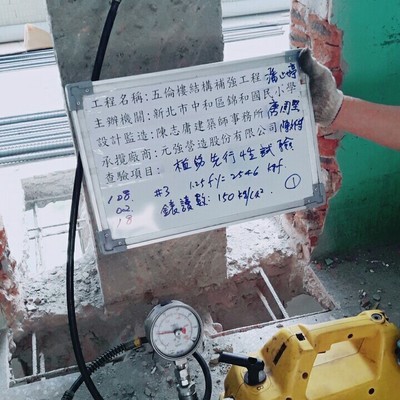 工程名稱:五倫樓結構補強工程
主辦機關:新北市中和區錦和國民小學
設計監造:陳志庸建築師事務所
承攬廠商:元強營造股份有限公司
查驗項目: 植筋先行性試驗
108. #3 1.25fy: 2546 kgf
02 錶讀數: 150 kg/cm². ①
18